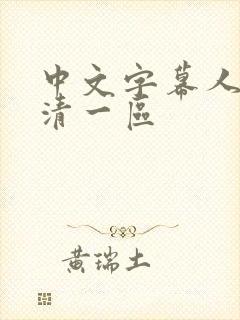 中文字幕人
清一區
黃瑞土